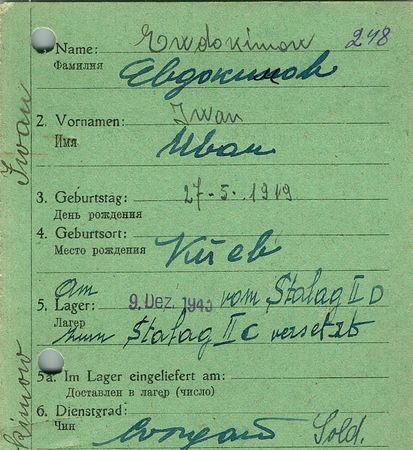 1. Name: Ewdokimow 248
Фамилия Евдокимов
2. Vornamen: Iwan
Имя Иван
3. Geburtstag: 27-5.1919
День рождения
4. Geburtsort:
Место рождения Киев
Am 9. Dez. 1943 vom Stalag II D
5. Lager:
Лагерь zum Stalag II C versetzt
5a. Im Lager eingeliefert am:
Доставлен в лагерь (число)
6. Dienstgrad:
Чин солдат Sold.
Iwan
kimow